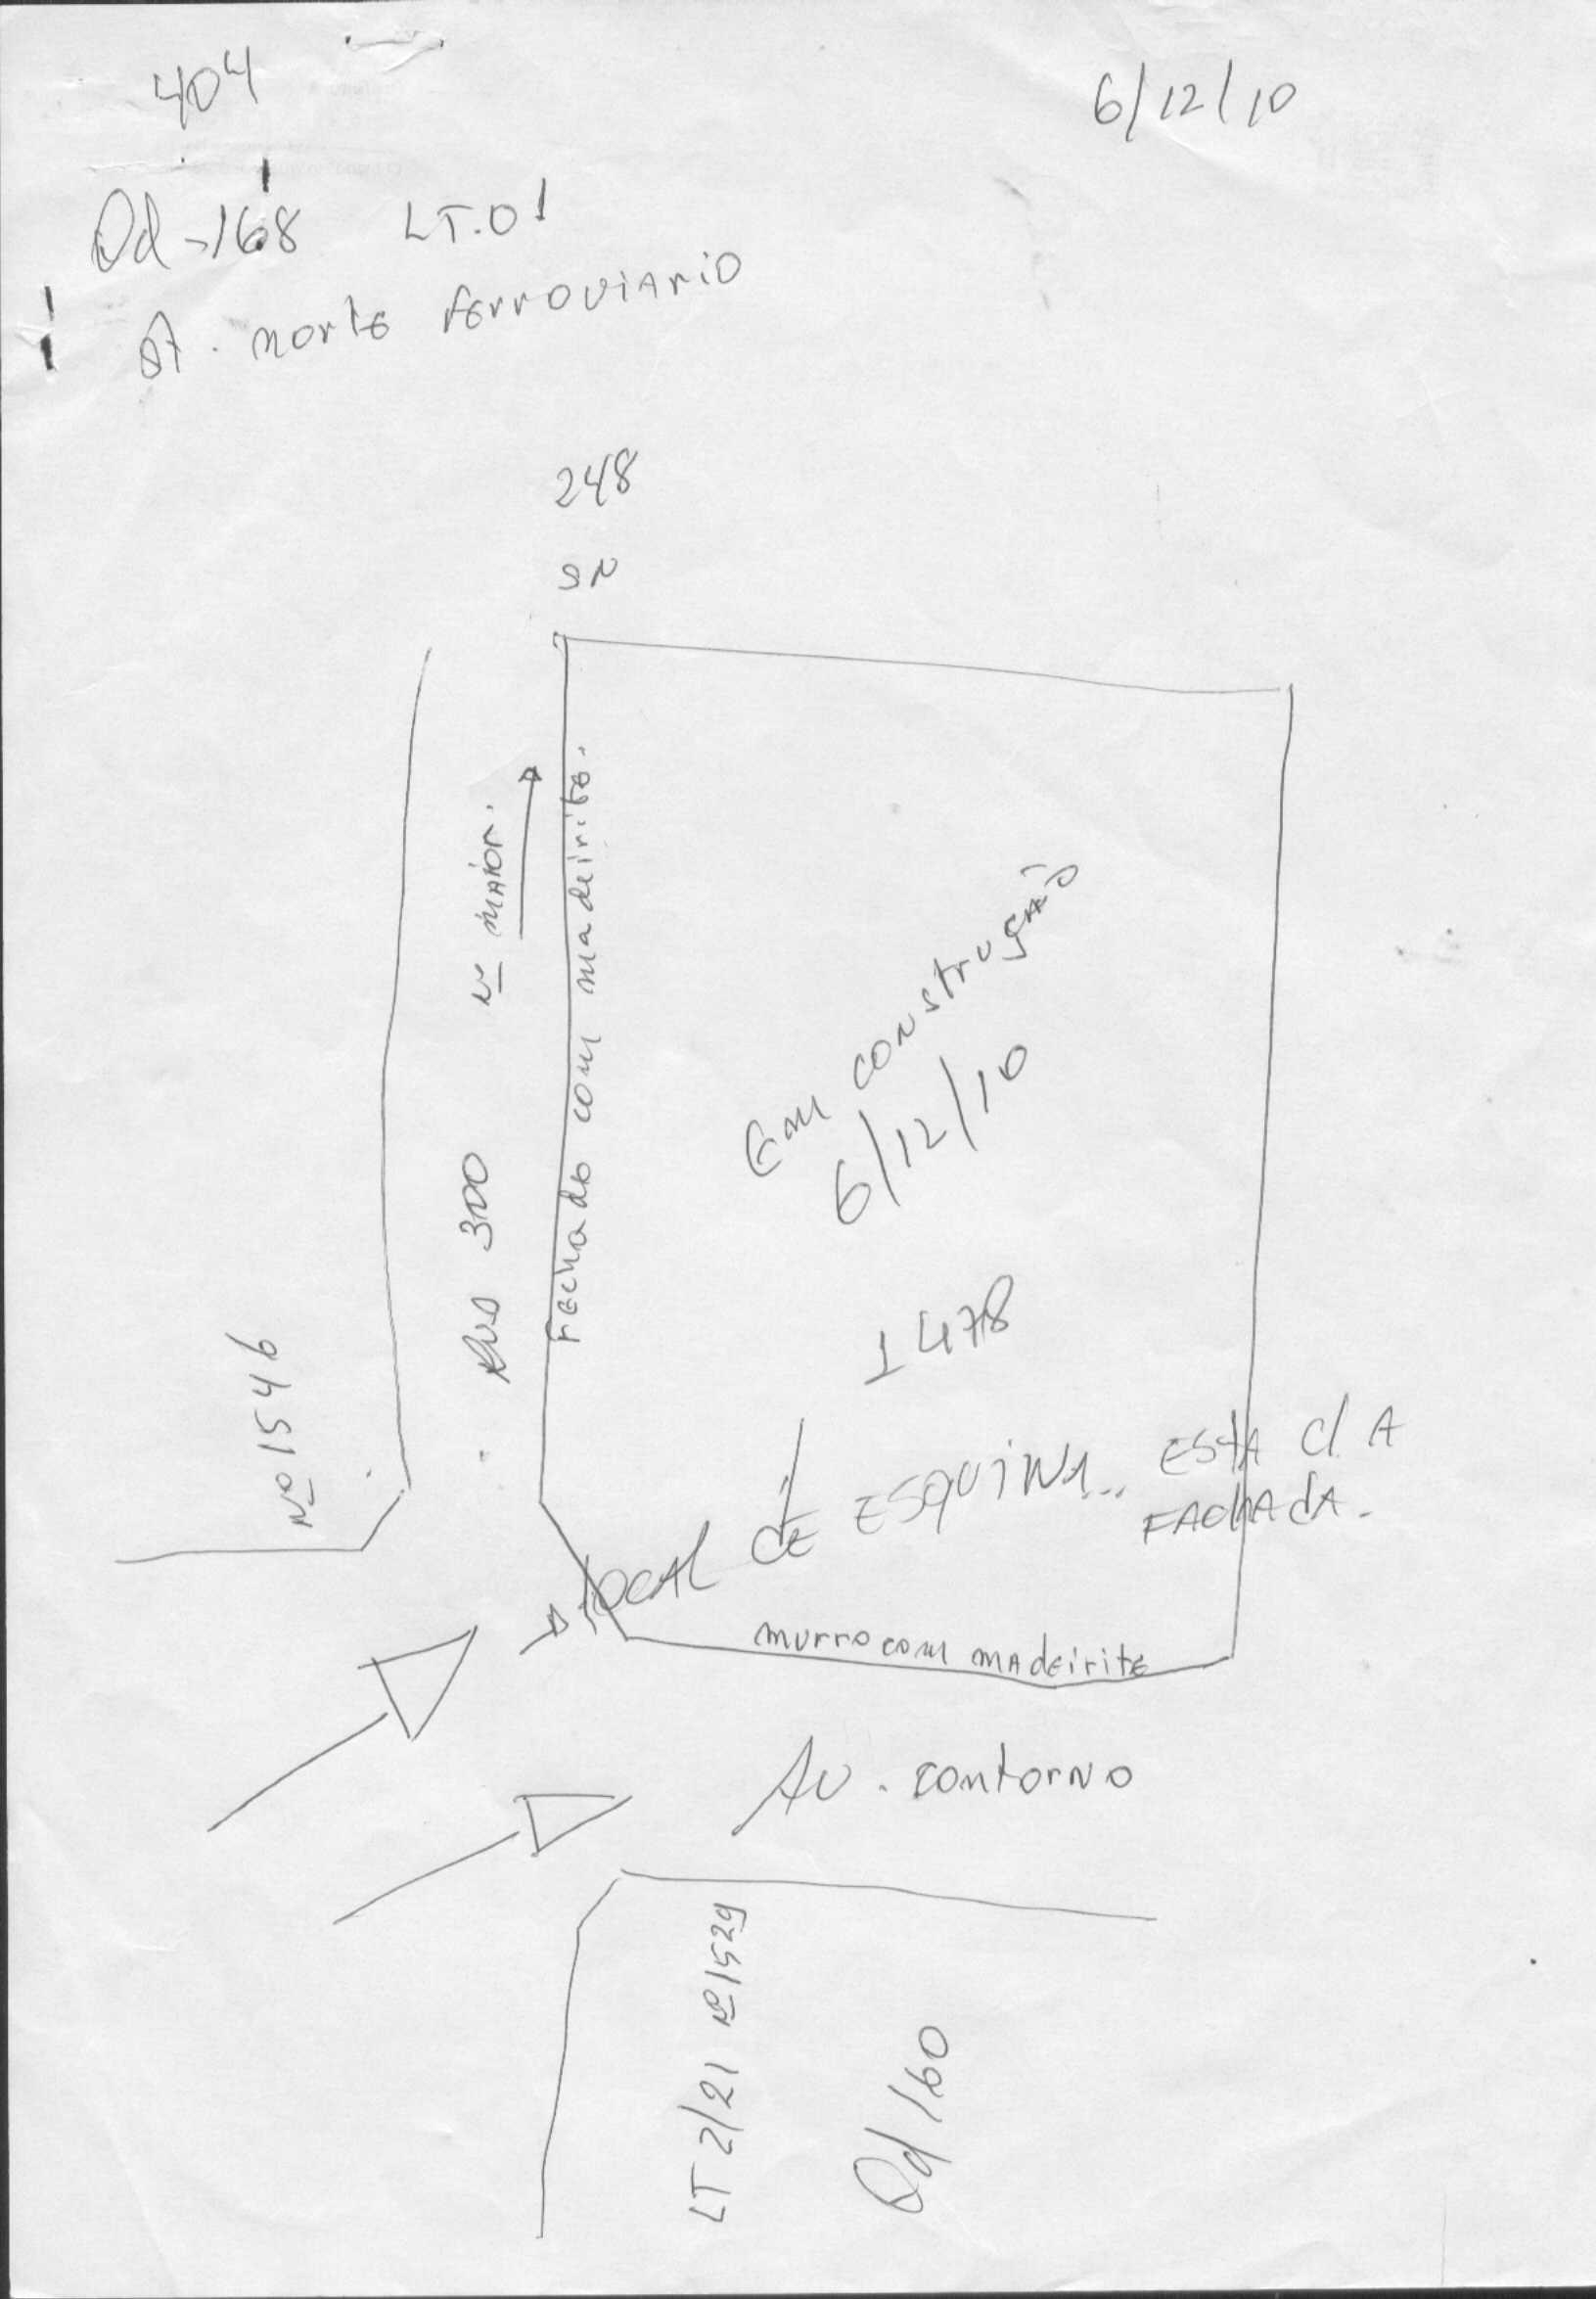 404
6/12/10
Qd-168 LT.01
St. norte ferroviario
248
SN
Nº maior.
Fechado com madeirite.
Em construção
6/12/10
Rua 300
1478
Nº 1546
local de ESQUINA... ESTA C/ A
FACHADA.
murro com madeirite
Av. contorno
LT 2/21 Nº 1529
Qd 160